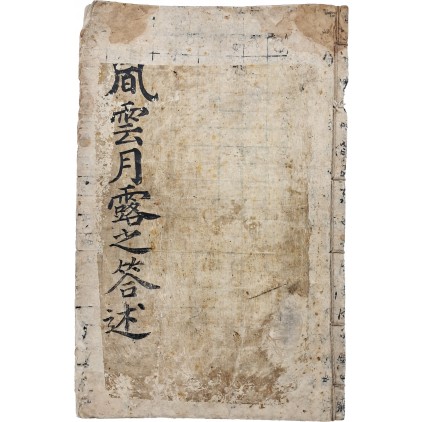 風雲月露之答述